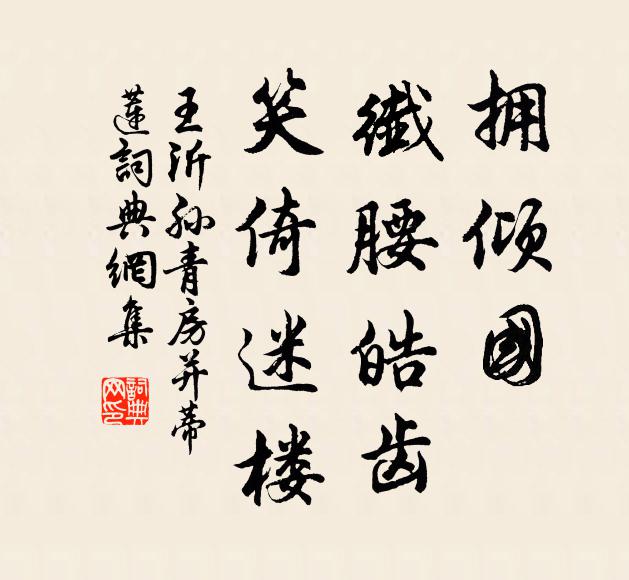 拥倾國
纖腰皓齿
笑倚迷楼
王沂孙青房并蒂
莲詞典網集
詞典网印